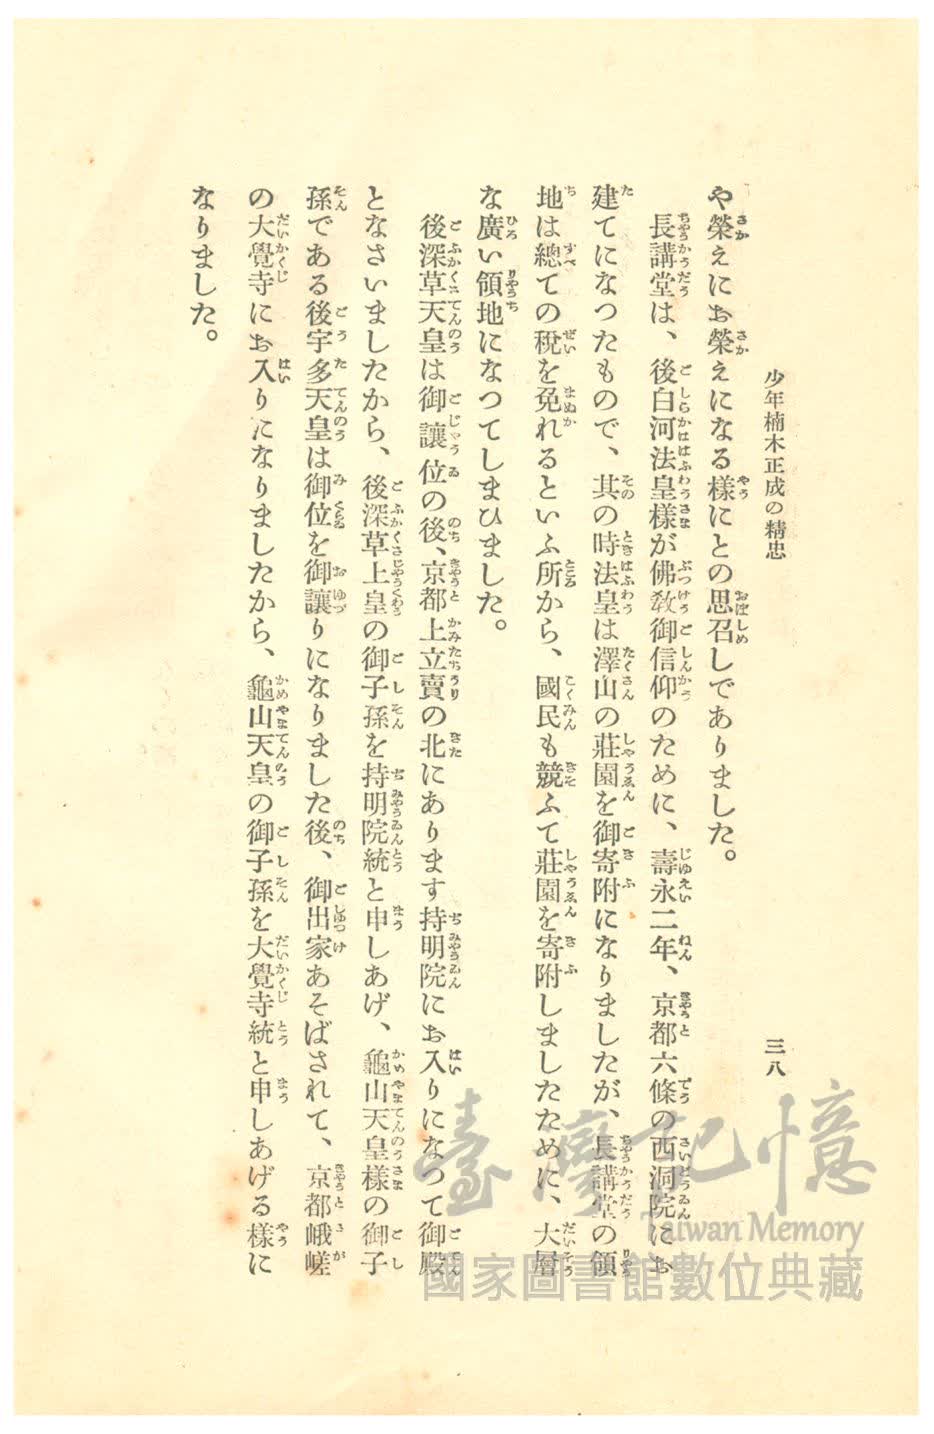 少年楠木正成の精忠
三八
や榮えにお榮えになる樣にとの思召しでありました。
長講堂は、後白河法皇樣が佛敎御信仰のために、壽永二年、京都六條の西洞院にお
建てになつたもので、其の時法皇は澤山の莊園を御寄附になりましたが、長講堂の領
地は總ての稅を免れるといふ所から、國民も競ふて莊園を寄附しましたために、大層
な廣い領地になつてしまひました。
後深草天皇は御讓位の後、京都上立賣の北にあります持明院にお入りになつて御殿
となさいましたから、後深草上皇の御子孫を持明院統と申しあげ、龜山天皇樣の御子
孫である後宇多天皇は御位を御讓りになりました後、御出家あそばされて、京都峨嵯
の大覺寺にお入りになりましたから、龜山天皇の御子孫を大覺寺統と申しあげる樣に
なりました。
臺灣記憶
Taiwan Memory
國家圖書館數位典藏